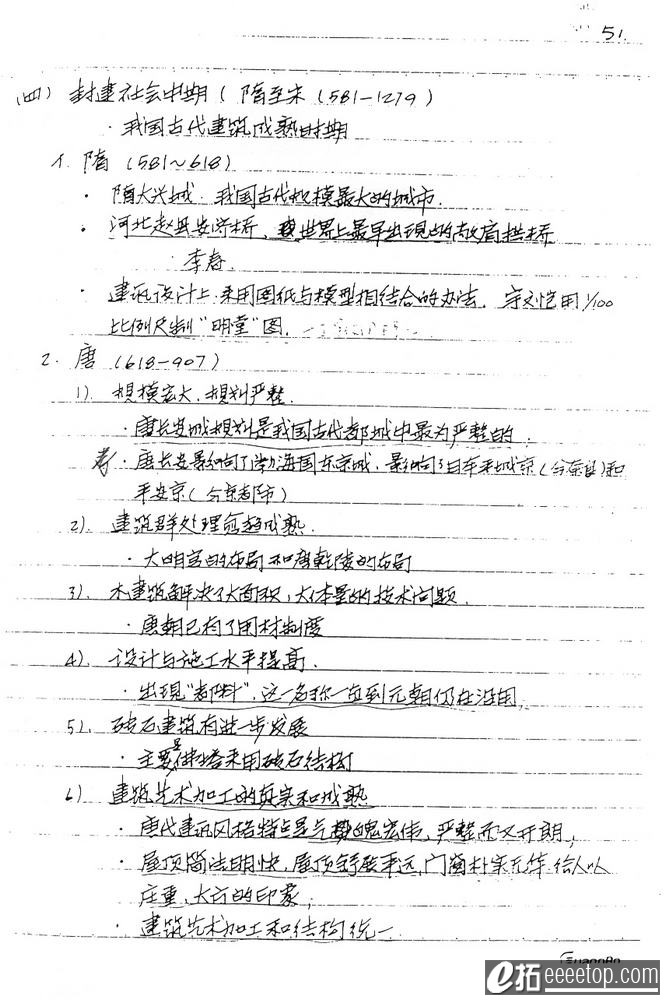 51.
(四) 封建社会中期 ( 隋至宋 (581-1279)
· 我国古代建筑成熟时期
1. 隋 (581~618)
· 隋大兴城. 我国古代规模最大的城市.
· 河北赵县安济桥, 世界上最早出现的敞肩拱桥
· 李春.
· 建筑设计上采用图纸与模型相结合的办法. 宇文恺用1/100
比例尺制"明堂"图.
2. 唐 (618-907)
1). 规模宏大, 规划严整.
· 唐长安城规划是我国古代都城中最为严整的
· 唐长安影响了渤海国东京城, 影响了日本平城京(今奈良)和
平安京(今京都市)
2). 建筑群处理愈趋成熟.
· 大明宫的布局和唐乾陵的布局
3). 木建筑解决了大面积, 大体量的技术问题.
· 唐朝已有了用材制度
4). 设计与施工水平提高.
· 出现"都料", 这一名称一直到元朝仍在沿用,
5). 砖石建筑有进一步发展
· 主要是佛塔采用砖石结构
6) 建筑艺术加工的真实和成熟
· 唐代建筑风格特点是气魄宏伟, 严整而又开朗,
· 屋顶简洁明快, 屋顶舒展平远, 门窗朴实无华, 给人以
庄重, 大方的印象,
· 建筑艺术加工和结构统一.
GuangBo
e拓eeeetop.com